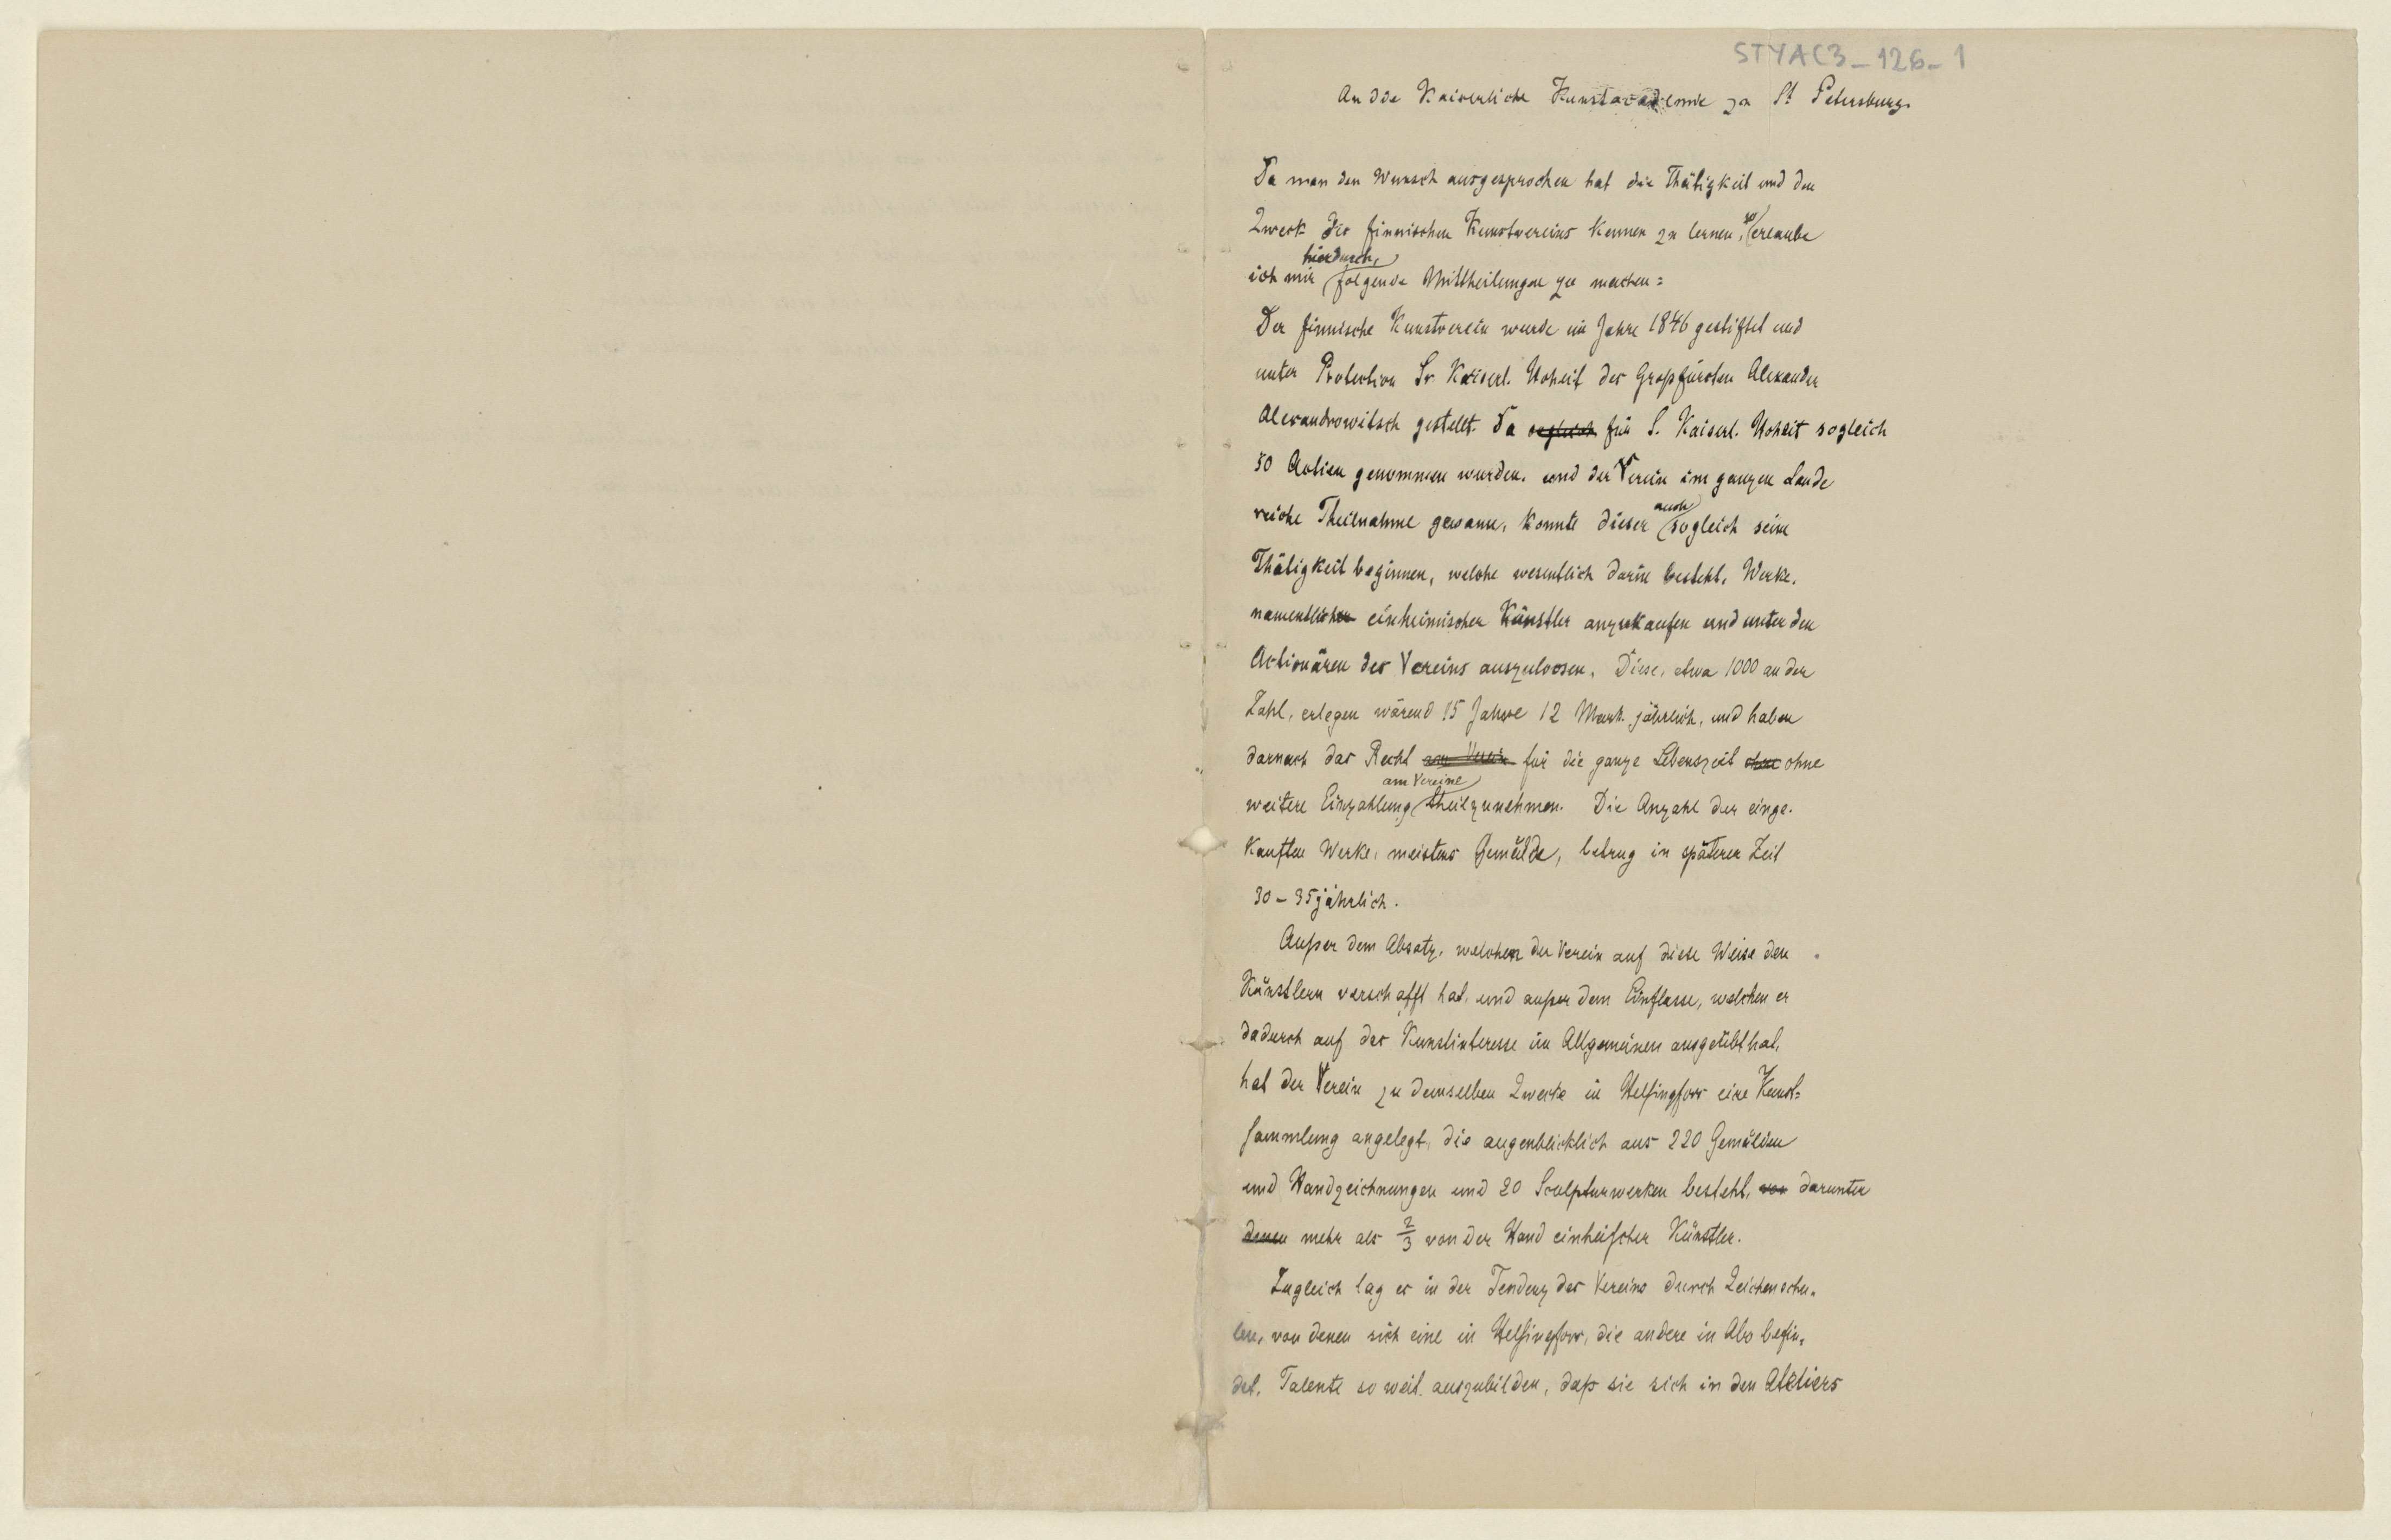 STYAC3_126_1
An die Kaiserliche Kunstacademie zu St Petersburg.
Da man den Wunsch ausgesprochen hat die Thätigkeit und den
Zweck des finnischen Kunstvereins kennen zu lernen, so erlaube
ich mir hierdurch, folgende Mittheilungen zu machen:
Der finnische Kunstverein wurde im Jahre 1846 gestiftet und
unter Protection Sr Kaiserl. Hoheit des Großfürsten Alexander
Alexandrowitsch gestellt. Da sogleich für S. Kaiserl. Hoheit sogleich
50 Actien genommen wurden, und der Verein im ganzen Lande
reiche Theilnahme gewann, konnte dieser auch sogleich seine
Thätigkeit beginnen, welche wesentlich darin besteht, Werke,
namentlicher einheimischer Künstler anzukaufen und unter den
Actionären des Vereins auszuloosen. Diese, etwa 1000 an der
Zahl, erlegen wärend 15 Jahre 12 Mark jährlich, und haben
darnach das Recht am Verein für die ganze Lebenszeit ohne ohne
weitere Einzahlung am Vereine theilzunehmen. Die Anzahl der einge-
kauften Werke, meistens Gemälde, betrug in späterer Zeit
30 – 35 jährlich.
Außer dem Absatz, welchen der Verein auf diese Weise den
Künstlern verschafft hat, und außer dem Einflusse, welchen er
dadurch auf das Kunstinteresse im Allgemeinen ausgeübt hat,
hat der Verein zu demselben Zwecke in Helsingfors eine Kunst=
sammlung angelegt, die augenblicklich aus 220 Gemälden
und Handzeichnungen und 20 Sculpturwerken besteht, von darunter
denen mehr als 2/3 von der Hand einheischer Künstler.
Zugleich lag es in der Tendenz des Vereins durch Zeichenschu-
len, von denen sich eine in Helsingfors, die andere in Abo befin-
det, Talente so weit auszubilden, daß sie sich in den Ateliers